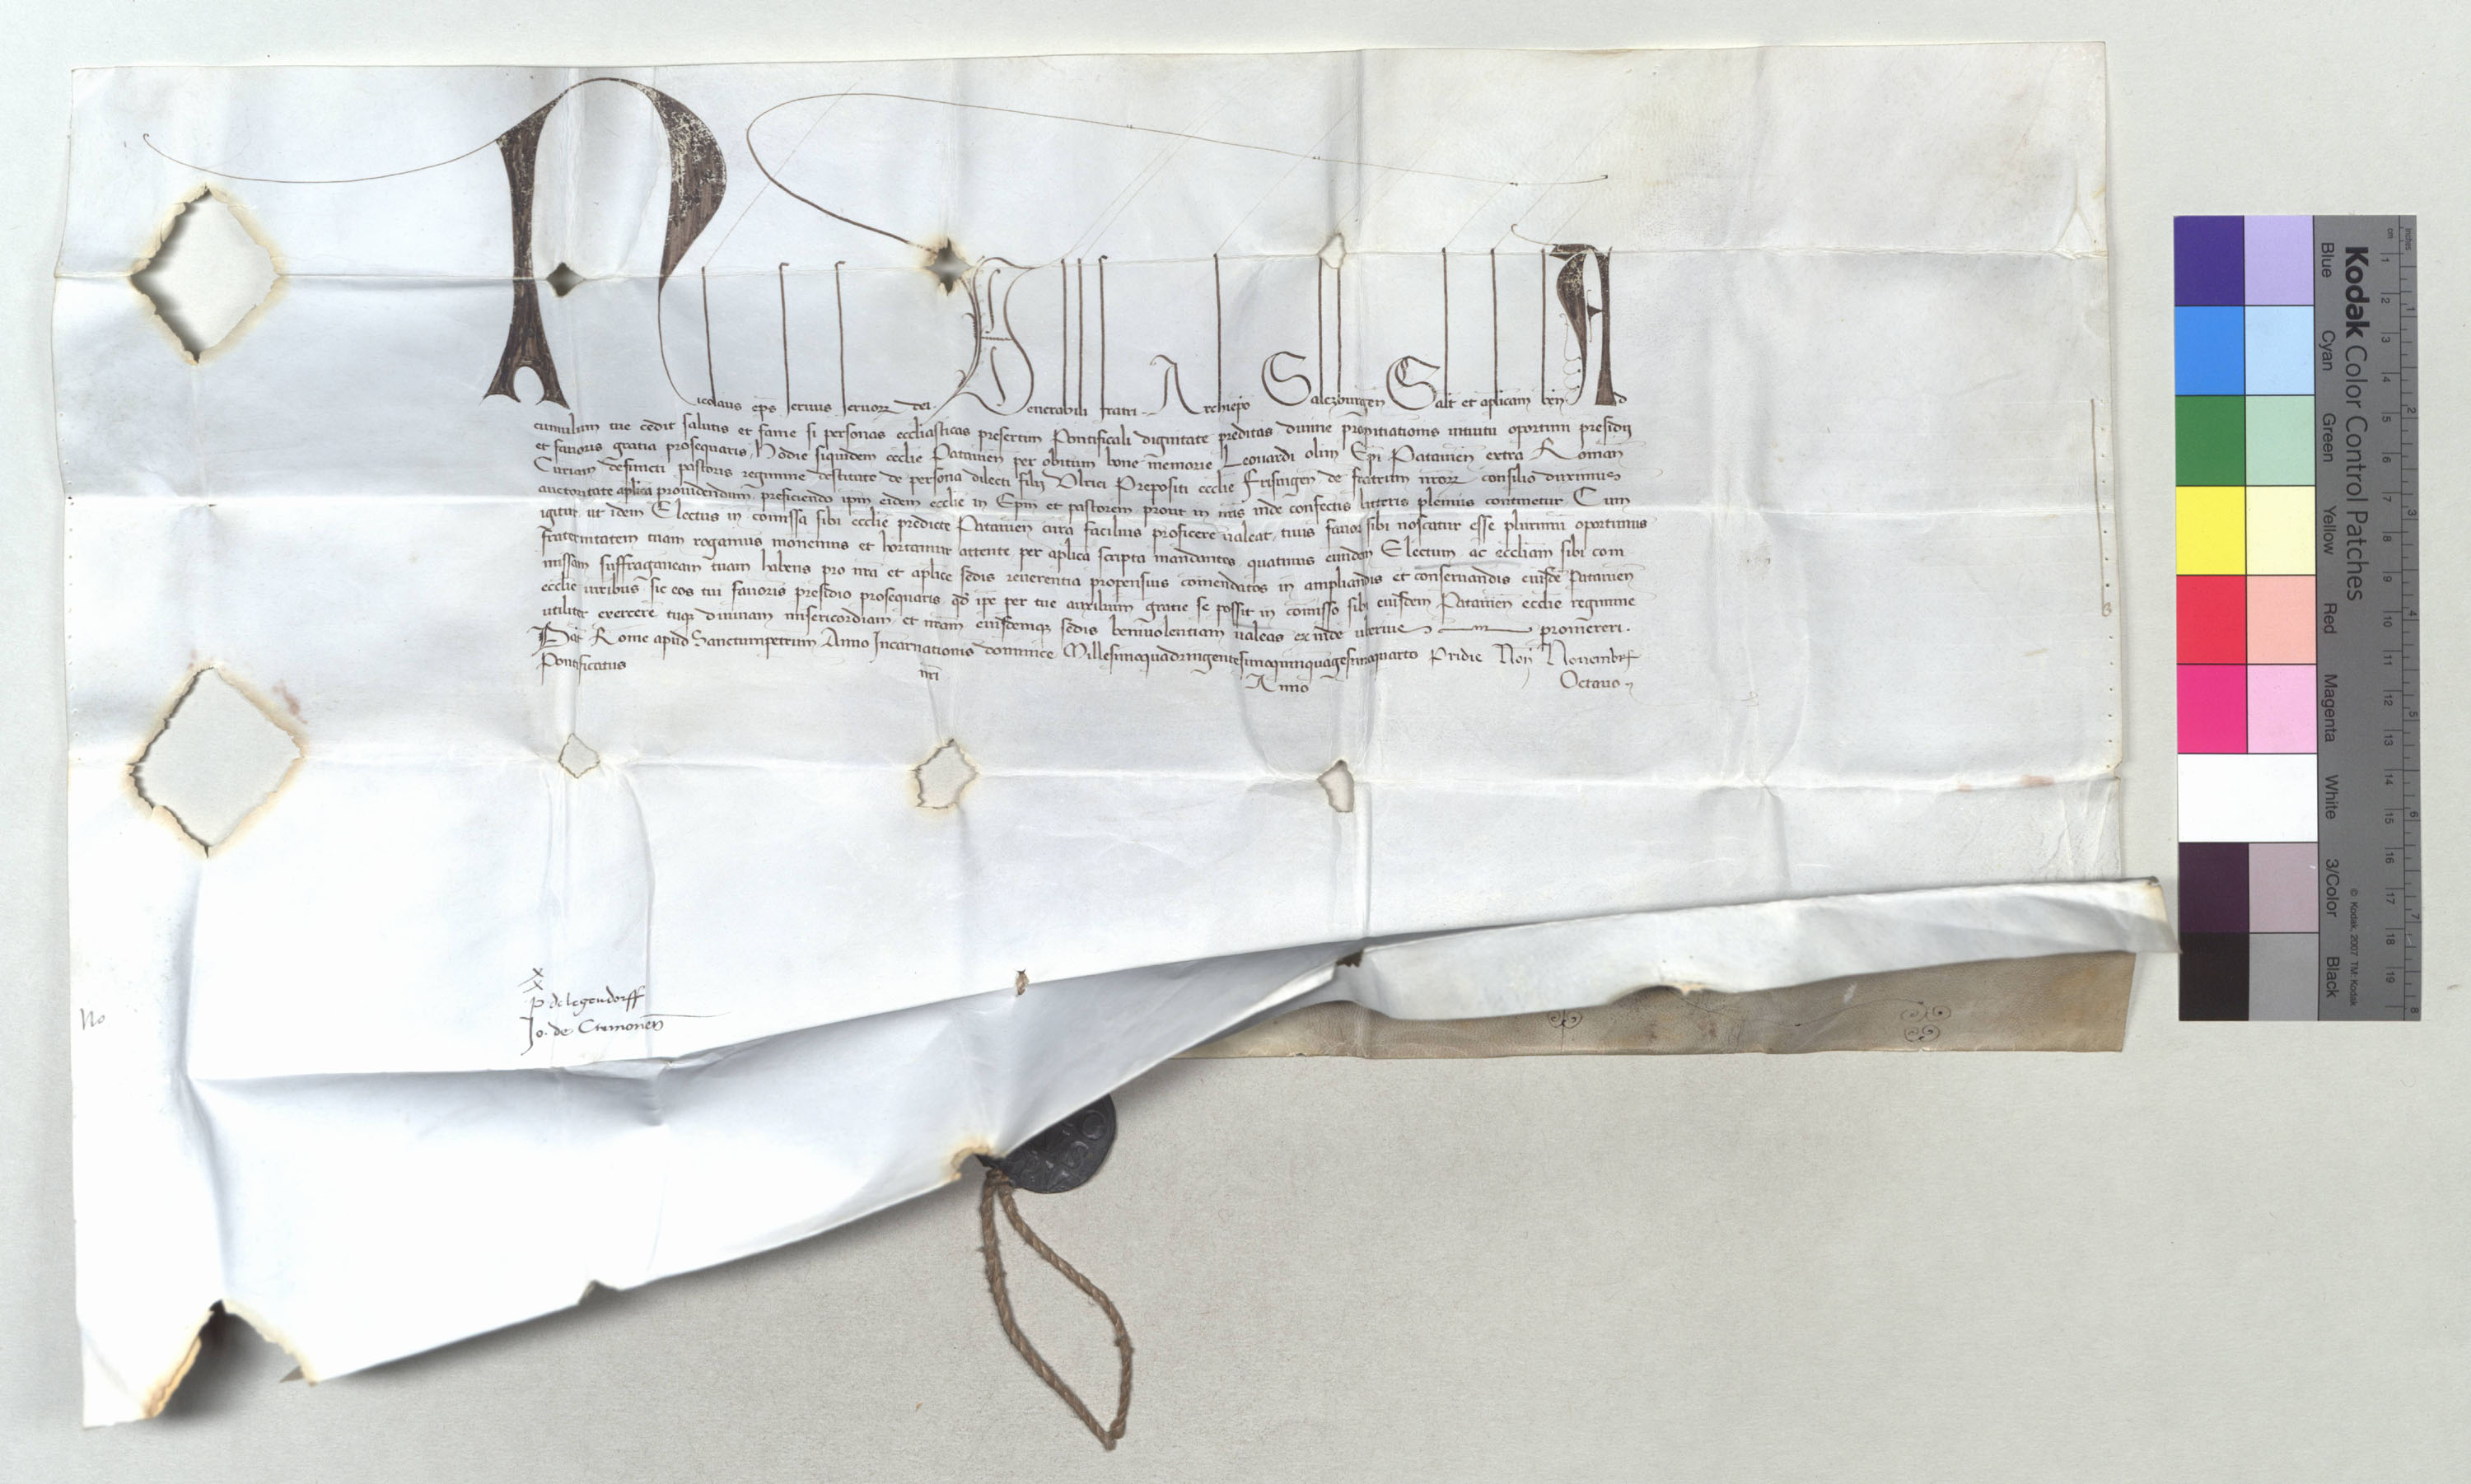 Nicolaus ep̅s seruus seruoꝝ dei. Venerabili fratri .. Archiep̅o Salczburgen̅ Salt̅ et ap̅licam ben̅. Ad
cumulum tue cedit salutis et fame si personas eccl̅iasticas presertim Pontificali dignitate preditas diuine propitiationis intuitu oportuni presidij
et fauoris gratia prosequaris. Hodie siquidem eccl̅ie Patauien̅ per obitum bone memorie Leonardi olim Ep̅i Patauien̅ extra Roman̅
Curiam defuncti pastoris regimine destitute de persona dilecti filij Vlrici Prepositi eccl̅ie Frisingen̅ de fratrum nr̅oꝝ consilio duximus
auctoritate ap̅lica prouidendum preficiendo ip̅m eidem eccl̅ie in Ep̅m et pastorem prout in nr̅is inde confectis litteris plenius continetur. Cum
igitur ut idem Electus in com̅issa sibi eccl̅ie predicte Patauien̅ cura facilius proficere ualeat, tuus fauor sibi noscatur esse plurimum oportunus
fraternitatem tuam rogamus monemus et hortamur attente, per ap̅lica scripta mandantes, quatinus eundem Electum ac eccl̅iam sibi com
missam suffraganeam tuam habens pro nr̅a et ap̅lice sedis reuerentia propensius com̅endatos in ampliandis et conseruandis eiusdē Patauien̅
eccl̅ie iuribus sic eos tui fauoris presidio prosequaris, qd̅ ip̅e per tue auxilium gratie se possit in com̅isso sibi eiusdem Patauien̅ eccl̅ie regimine
utiliter exercere, tuqꝫ diuinam misericordiam et nr̅am eiusdemqꝫ sedis beniuolentiam ualeas exinde uberius promereri.
Dat̅ Rome apud Sanctumpetrum Anno Incarnationis dominice Millesimoquadringentesimoquinquagesimoquarto Pridie Non̅ Nouembr̅
Pontificatus nr̅i Anno Octauo
xx
p. de legendorff
Jo. de Cremonen̅
No
Kodak Color Control Patches
Blue Cyan Green Yellow Red Magenta White 3/Color Black
© Kodak, 2007 TM: Kodak
inches 1 2 3 4 5 6 7 8
cm 1 2 3 4 5 6 7 8 9 10 11 12 13 14 15 16 17 18 19